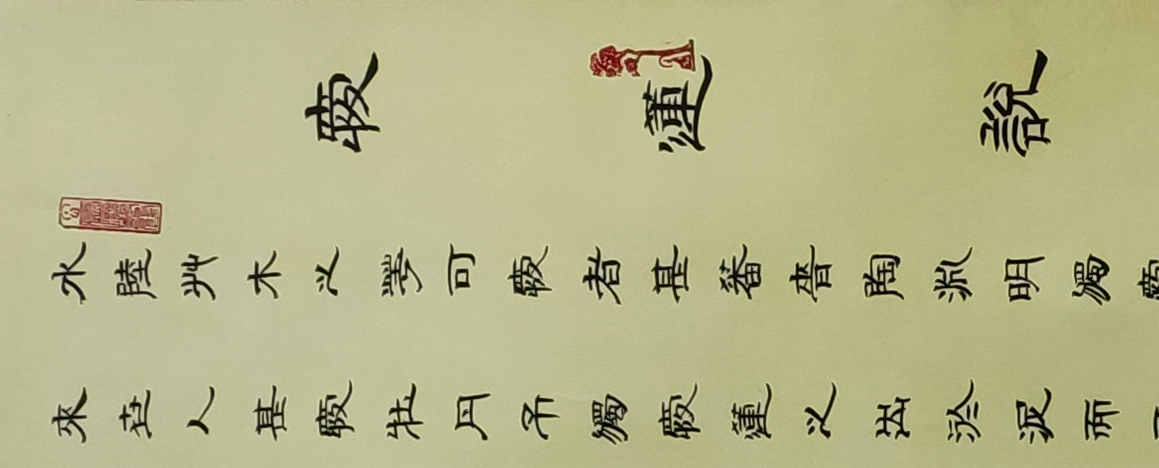 愛蓮說
水陸艸木之華可愛者甚蕃晉陶淵明獨愛
來世人甚愛牡丹予獨愛蓮之出淤泥而